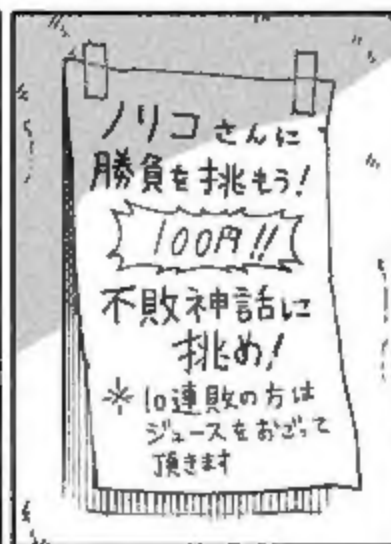 ノリコさんに
勝負を挑もう!
100円!!
不敗神話に
挑め!
*10連敗の方は
ジュースをおごって
頂きます